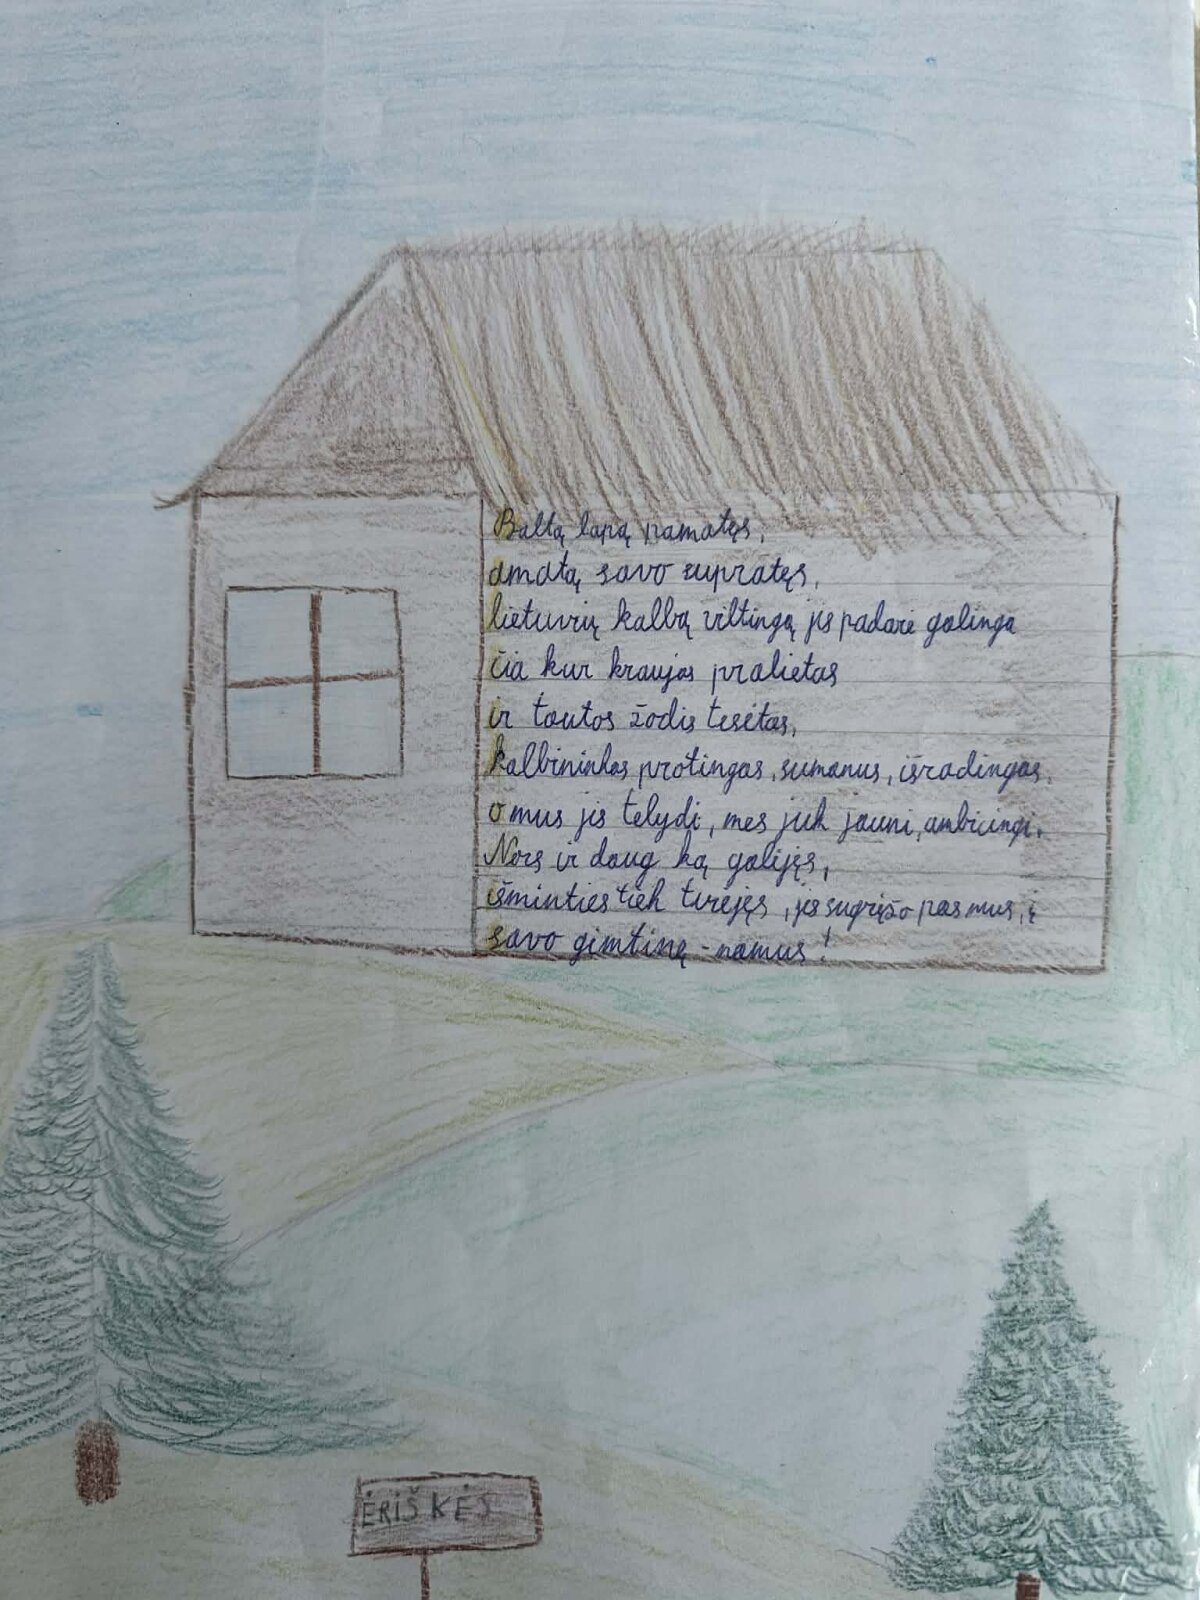 Baltą lapą pamatęs,
amatą savo supratęs,
lietuvių kalbą viltingą jis padarė galinga
čia kur kraujas pralietas
ir tautos žodis tesėtas,
kalbininkas protingas, sumanus, išradingas,
o mus jis telydi, mes juk jauni, ambicingi.
Nors ir daug ką galijęs,
išminties tiek turėjęs, jis sugrįžo pas mus, į
savo gimtinę - namus!
ĖRIŠKĖS